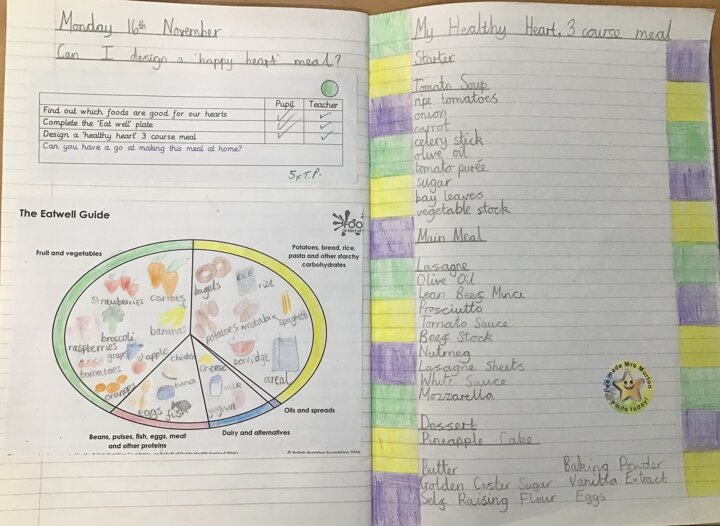 Monday 16th November
Can I design a 'happy heart' meal?
Pupil Teacher
Find out which foods are good for our hearts
Complete the 'Eat well' plate
Design a 'healthy heart' 3 course meal
Can you have a go at making this meal at home?
5xT.P.
The Eatwell Guide
FOO
Fruit and vegetables
Potatoes, bread, rice,
pasta and other starchy
carbohydrates
strawberries
carrots
bananas
broccoli
raspberries
grape
apple
tomatoes
oranges
bagels
RICE
rice
potatoes
weetabix
spaghetti
porridge
cereal
tuna
eggs
fish
cheese
milk
yogurt
Oils and spreads
Beans, pulses, fish, eggs, meat
and other proteins
Dairy and alternatives
My Healthy Heart, 3 course meal
Starter
Tomato Soup
ripe tomatoes
onion
carrot
celery stick
olive oil
tomato purée
sugar
bay leaves
vegetable stock
Main Meal
Lasagne
Olive Oil
Lean Beef Mince
Prosciutto
Tomato Sauce
Beef Stock
Nutmeg
Lasagne Sheets
White Sauce
Mozzarella
You've made Mrs Murton
smile today!
Dessert
Pineapple Cake
Butter Baking Powder
Golden Caster Sugar Vanilla Extract
Self Raising Flour Eggs